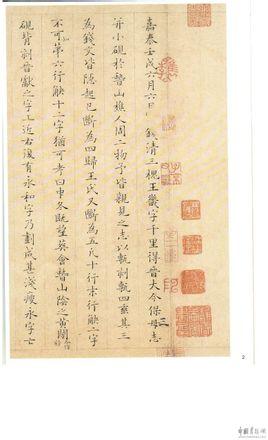 嘉泰壬戌六月六日錢清三槐王畿字千里得晉大令保母志
并小硯於嵇山樵人周二物予皆親見之志以甎刻甎四垂其三
為錢文皆隱起已斷為四歸王氏又斷為五凡十行末行缺二字
不可知第六行缺十二字猶可考曰中冬既望葬會嵇山陰之黃閍
硯背刻晉獻之字上近右復有永和字乃劃成甚淺瘦永字亡
2